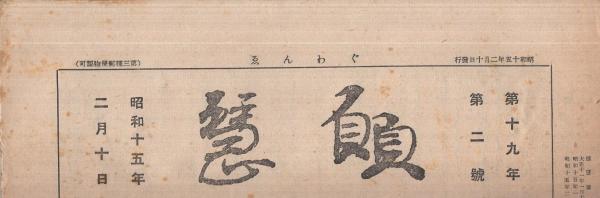 昭和十五年二月十日發行
ぐわんゑ
(第三種郵便物認可)
第十九年
第二號
願慧
昭和十五年
二月十日